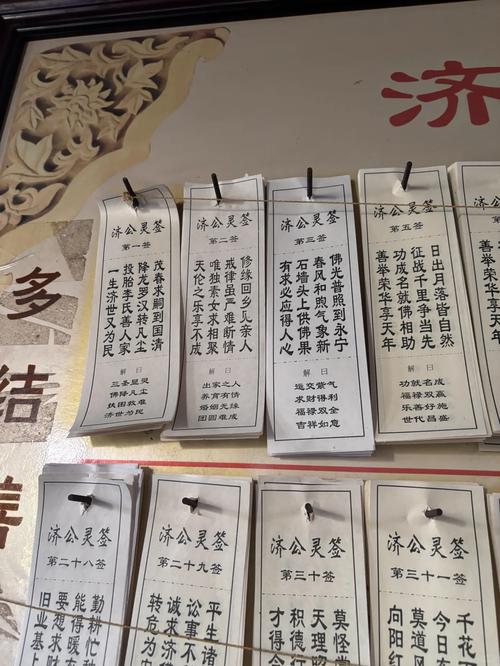 济
多
结
善
济公灵签
第一签
茂春求嗣到国清
降龙罗汉转凡尘
投胎李氏善人家
一生济世又为民
解曰
三圣显灵
佛降凡尘
扶困救难
济世为民
济公灵签
第二签
修缘回乡见亲人
戒律虽严难断情
唯独素女求相聚
天伦之乐享不成
解曰
出家之人
养育有情
婚姻无缘
团圆难成
济公灵签
第三签
佛光普照到永宁
春风和煦气象新
石墙头上供佛果
有求必应得人心
解曰
运交紫气
求财得利
福禄双全
吉祥如意
济公灵签
第五签
日出月落皆自然
征战千里争当先
功成名就佛相助
善举荣华享天年
解曰
功就名成
福禄双赢
乐善好施
世代昌盛
善举荣华享天年
济公灵签
第二十八签
勤耕忙种
能得暖衣
要想求财
旧业基上
济公灵签
第二十九签
平生诸
讼事不
诚求济
转危为安
济公灵签
第三十签
莫怪
天理
积德行
才得
济公灵签
第三十一签
千花
今日在
莫道
向阳红